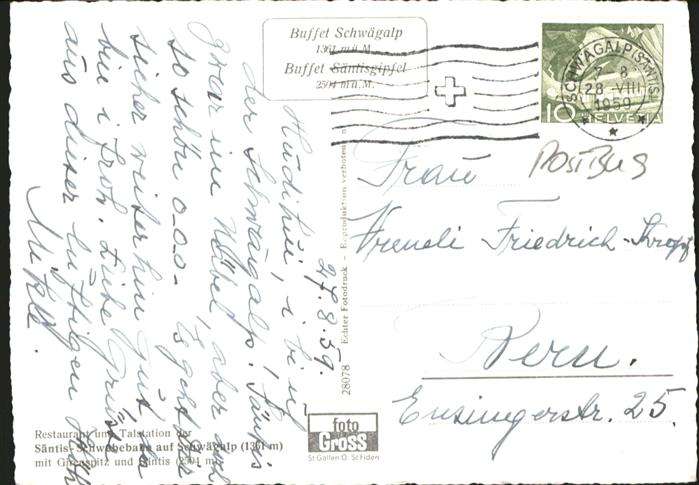 Buffet Schwägalp
1361 m ü. M.
Buffet Säntisgipfel
2504 m ü. M.
SCHWÄGALP (SÄNTIS)
7 8
28 -VIII
1959
10 HELVETIA
POSTBUS
Frau
Vreneli Friedrich-
Bern.
Ensingerstr. 25.
27.8.59.
i bi uf
der Schwägalp! Säntis
zwar im Näbel, aber
so schön o-o-o- Es geht
sicher witerhin guet
bin i froh. Liebe Grüss
aus dieser luftigen Höh
28078 Echter Fotodruck - Reproduktion verboten
Restaurant und Talstation der
Säntis-Schwebebahn auf Schwägalp (1361 m)
mit Girenspitz und Säntis (2504 m)
foto
Gross
St. Gallen O. Schiden